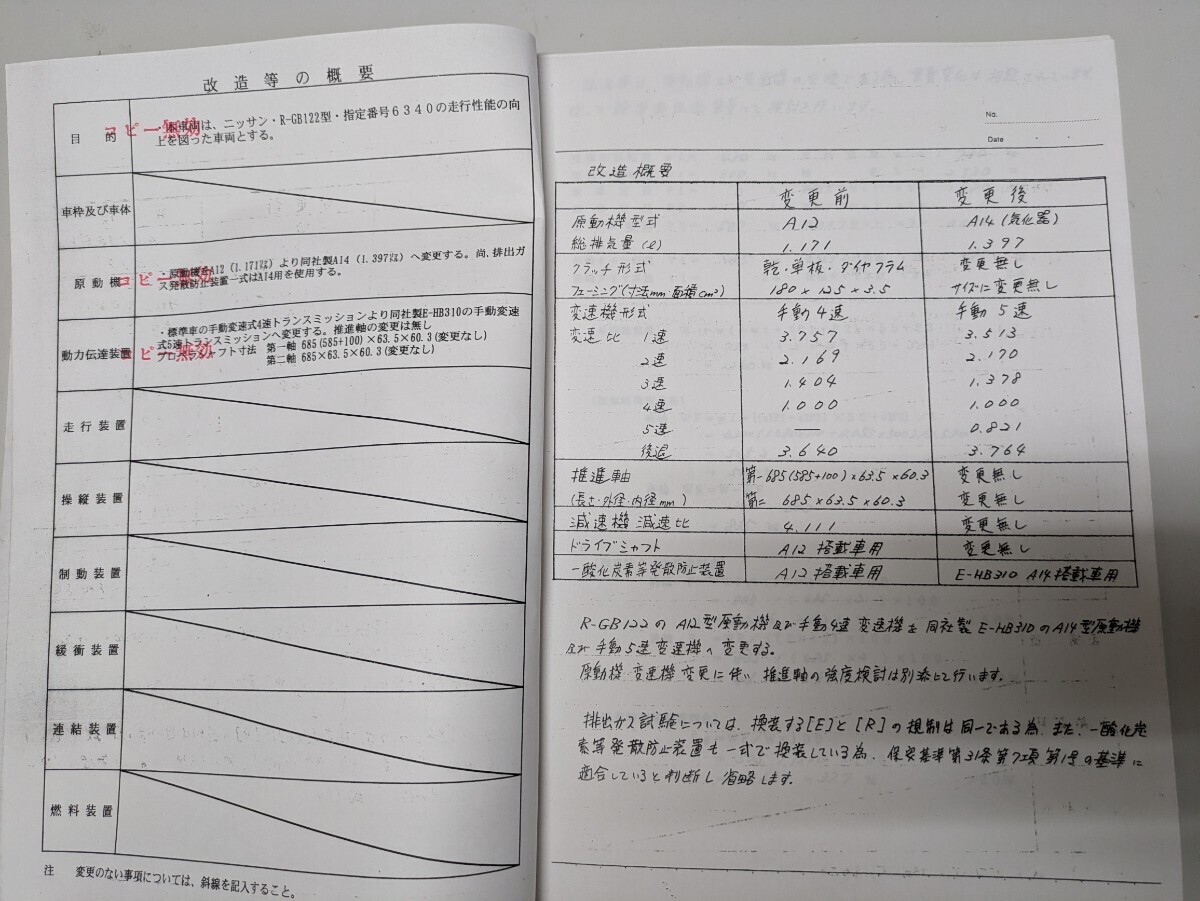 改造等の概要
目的
・本車両は、ニッサン・R-GB122型・指定番号6340の走行性能の向
上を図った車両とする。
コピー無効
車枠及び車体
原動機
・原動機をA12 (1.171㍑) より同社製A14 (1.397㍑) へ変更する。尚、排出ガ
ス発散防止装置一式はA14用を使用する。
コピー無効
動力伝達装置
・標準車の手動変速式4速トランスミッションより同社製E-HB310の手動変速
式5速トランスミッションへ変更する。推進軸の変更は無し
プロペラシャフト寸法 第一軸 685(585+100)×63.5×60.3(変更なし)
第二軸 685×63.5×60.3(変更なし)
コピー無効
走行装置
操縦装置
制動装置
緩衝装置
連結装置
燃料装置
注 変更のない事項については、斜線を記入すること。
No.
Date
改造概要
変更前 変更後
原動機型式 A12 A14(気化器)
総排気量(ℓ) 1.171 1.397
クラッチ形式 乾・単板・ダイヤフラム 変更無し
フェーシング(寸法mm・面積cm²) 180×125×3.5 サイズに変更無し
変速機形式 手動4速 手動5速
変速比 1速 3.757 3.513
2速 2.169 2.170
3速 1.404 1.378
4速 1.000 1.000
5速 — 0.821
後退 3.640 3.764
推進軸 第一 685(585+100)×63.5×60.3 変更無し
(長さ・外径・内径mm) 第二 685×63.5×60.3 変更無し
減速機 減速比 4.111 変更無し
ドライブシャフト A12搭載車用 変更無し
一酸化炭素等発散防止装置 A12搭載車用 E-HB310 A14搭載車用
R-GB122の A12型原動機及び手動4速変速機を同社製E-HB310のA14型原動機
及び手動5速変速機へ変更する。
原動機・変速機変更に伴い 推進軸の強度検討は別添にて行います。
排出ガス試験については、換装する[E]と[R]の規制は同一である為、また、一酸化炭
素等発散防止装置も一式で換装している為、保安基準第31条第7項第1号の基準に
適合していると判断し省略します。